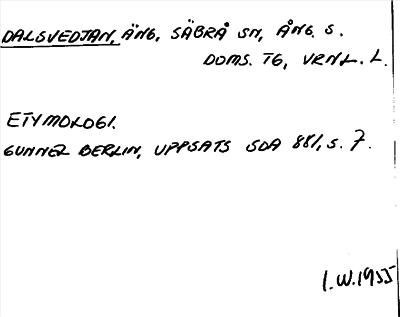 DALSVEDJAN, ÄNG, SÄBRÅ SN, ÅNG. S.
DOMS. TG, VRNL. L.
ETYMOLOGI.
GUNNEL BERLIN, UPPSATS SDA 881, S. 7.
I.W.1955